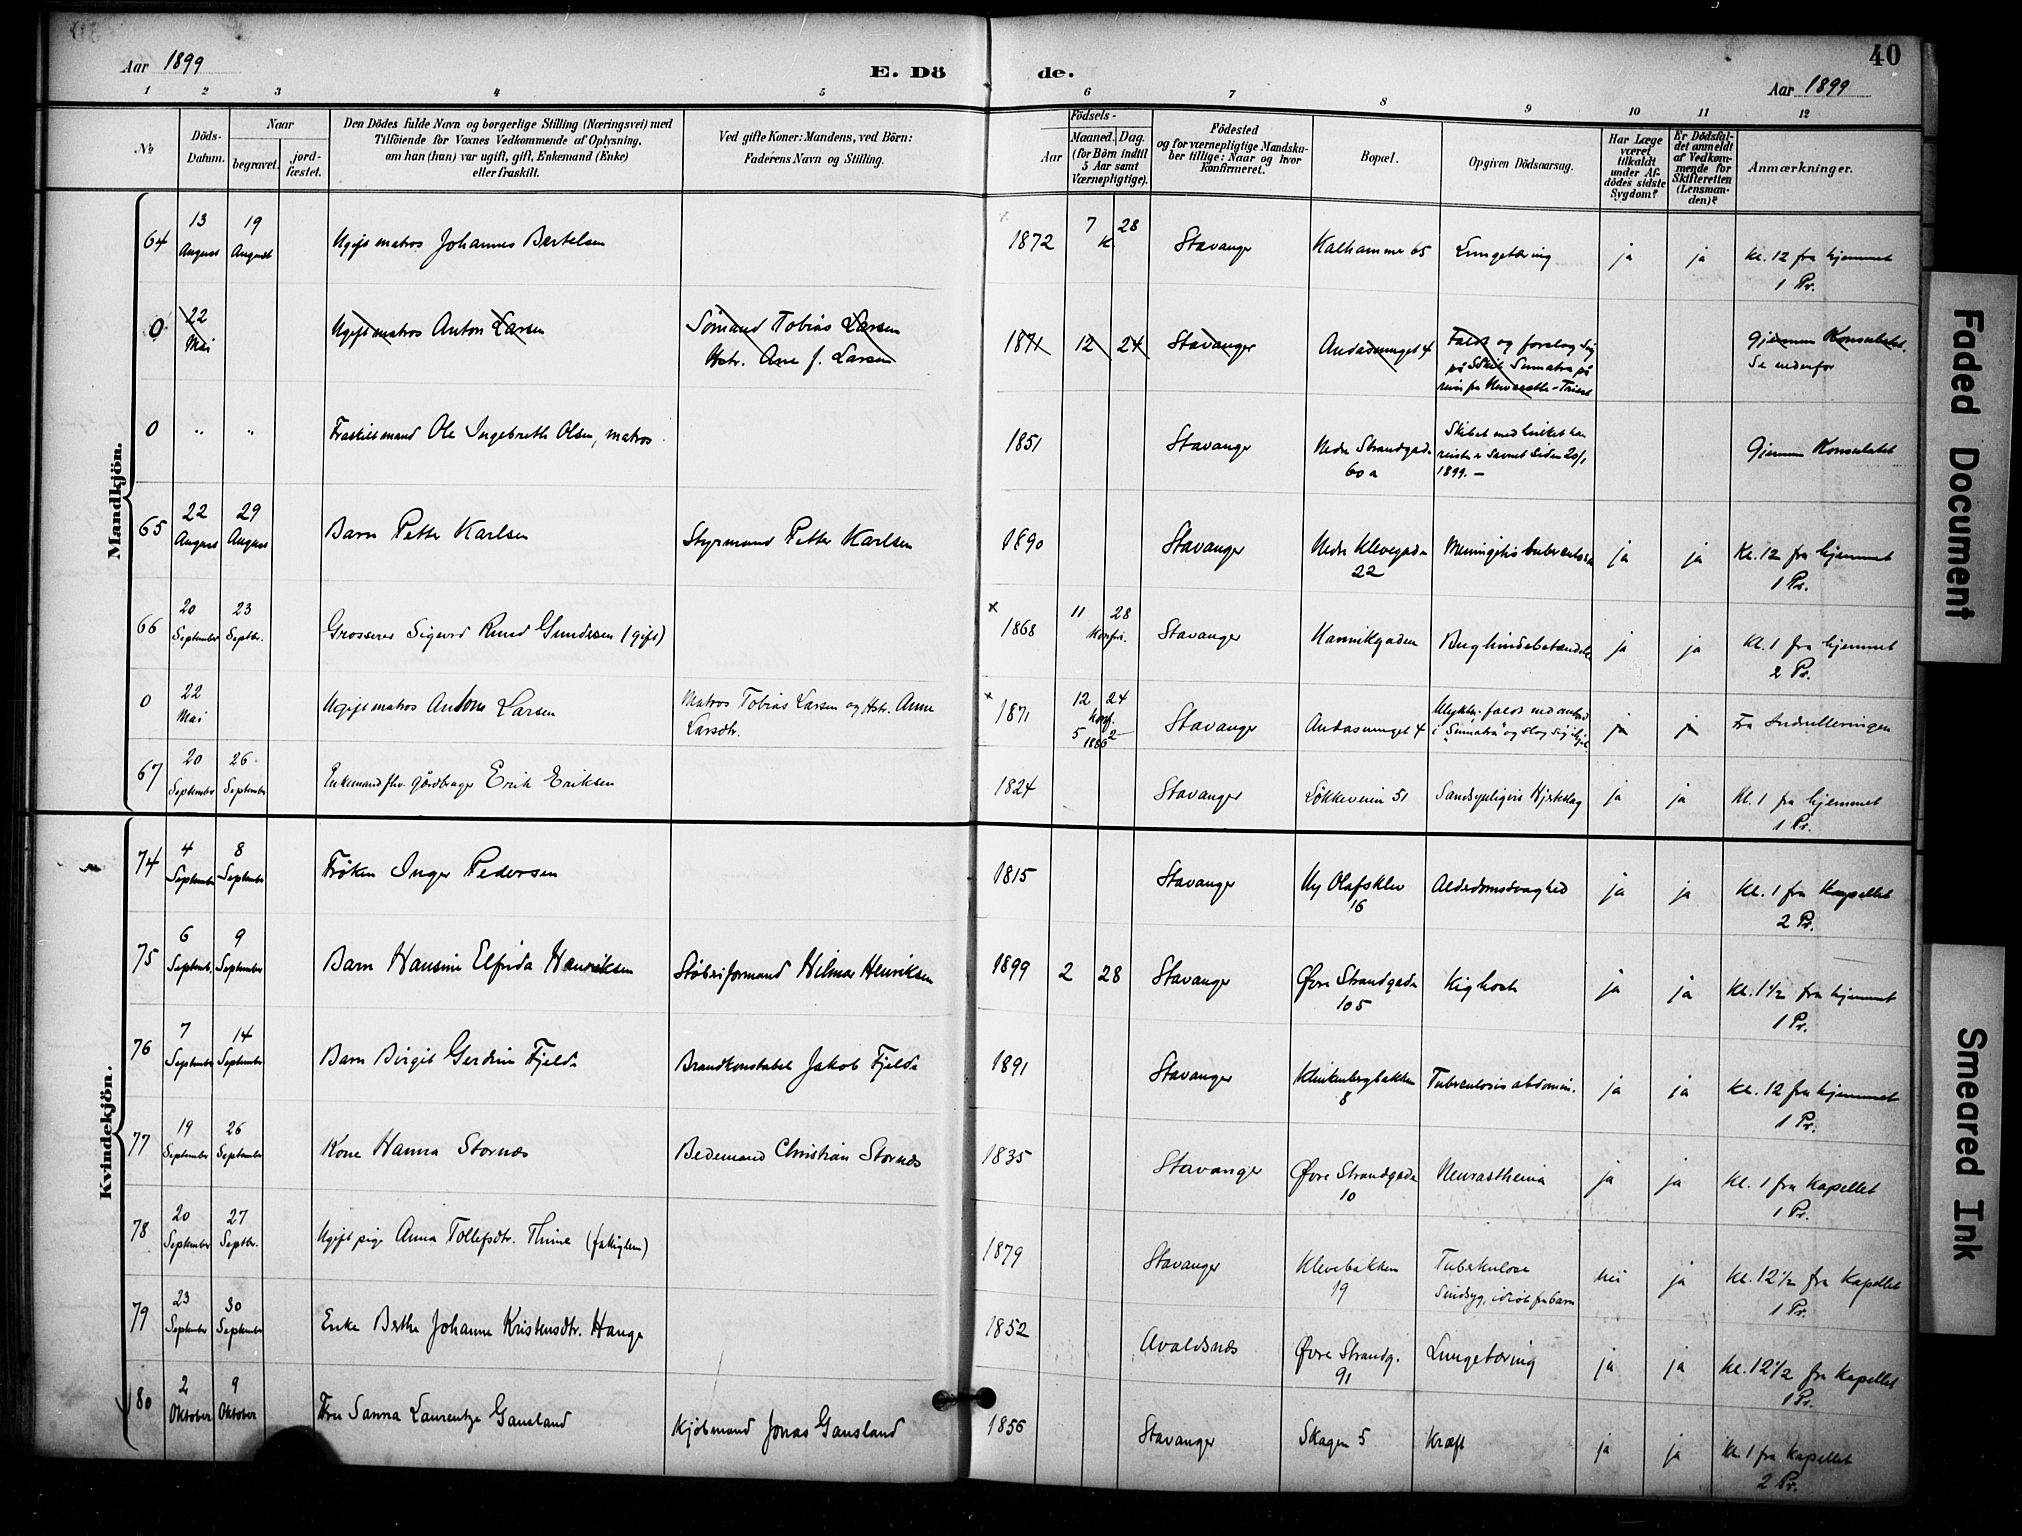 40
Aar 1899
E. Döde.
Aar 1899
1 2 3 4 5 6 7 8 9 10 11 12
No
Döds-Datum.
Naar
begravet.
jord-fæstet.
Den Dödes fulde Navn og borgerlige Stilling (Næringsvei) med
Tilföiende for Voxnes Vedkommende af Oplysning,
om han (hun) var ugift, gift, Enkemand (Enke)
eller fraskilt.
Ved gifte Koner: Mandens, ved Börn:
Faderens Navn og Stilling.
Födsels-
Aar
Maaned. Dag.
(for Börn indtil
5 Aar samt
Værnepligtige).
Födested
og for værnepligtige Mandska-
ber tillige: Naar og hvor
konfirmeret.
Bopæl.
Opgiven Dödsaarsag.
Har Læge
været
tilkaldt
under Af-
dödes sidste
Sygdom?
Er Dödsfal-
det anmeldt
af Vedkom-
mende for
Skifteretten
(Lensman-
den)?
Anmærkninger.
Mandkjön.
64 13 August 19 August Ugift matros Johannes Bertelsen 1872 7 28 K. Stavanger Kalhammer 65 Lungetæring ja ja Kl. 12 fra hjemmet 1 Pr.
0 22 Mai Ugift matros Anton Larsen Sømand Tobias Larsen Hstr. Ane J. Larsen 1871 12 24 Stavanger Andasmuget 4 Faldt og forslog sig på Skib Sumatra på reise fra Newcastle - Triest Gjennem Konsulatet Se nedenfor
0 " " Fraskilt mand Ole Ingebreth Olsen, matros 1851 Stavanger Nedre Strandgade 60 a Skibet med hvilket han reiste er savnet siden 20/1 1899. - Gjennem Konsulatet
65 22 August 29 August Barn Petter Karlsen Styrmand Petter Karlsen 1890 Stavanger Nedre Klevegade 22 Meningitis tuberculosa ja ja Kl. 12 fra hjemmet 1 Pr.
66 20 September 23 Septbr. Grosserer Sigurd Rund Gundersen (gift) × 1868 11 28 Konfir. Stavanger Kannikgaden Bughindebetændelse ja ja Kl. 1 fra hjemmet 2 Pr.
0 22 Mai Ugift matros Anton Larsen Matros Tobias Larsen og Hstr. Anne Larsdtr. × 1871 12 24 Konf. 5 2 1886 Stavanger Andasmuget 4 faldt ned ombord i "Sumatra" og slog sig ihjel ja ja Fra Indrulleringen
67 20 September 26 September Enkemand fhv. gårdbruger Erik Eriksen 1824 Stavanger Løkkeveien 51 Sandsynligvis Hjerteslag ja ja Kl. 1 fra hjemmet 1 Pr.
Kvindekjön.
74 4 September 8 September Frøken Inger Pedersen 1815 Stavanger Ny Olafsklev 16 Alderdomssvaghed ja ja Kl. 1 fra Kapellet 2 Pr.
75 6 Septemb. 9 September Barn Hansine Elfrida Henriksen Støberiformand Hilmar Henriksen 1899 2 28 Stavanger Øvre Strandgade 105 Kighoste ja ja Kl. 1 1/2 fra hjemmet 1 Pr.
76 7 September 14 September Barn Birgit Gerdine Fjelde Brandkonstabel Jakob Fjelde 1891 Stavanger Klinkenbergbakken 8 Tuberculosis abdomin. ja ja Kl. 12 fra hjemmet 1 Pr.
77 19 September 26 September Kone Hanna Stornæs Bedemand Christian Stornæs 1835 Stavanger Øvre Strandgade 10 Neurasthenia ja ja Kl. 1 fra Kapellet 1 Pr.
78 20 September 27 Septbr. Ugift pige Anna Tollefsdtr. Thime (fattiglem) 1879 Stavanger Klevebakken 19 Tuberkulose Sindsyg, idiot fra barn nei ja Kl. 12 1/2 fra Kapellet 1 Pr.
79 23 September 30 September Enke Berthe Johanne Kristensdtr. Hauge 1852 Avaldsnæs Øvre Strandg. 91 Lungetæring ja ja Kl. 12 1/2 fra Kapellet 1 Pr.
80 2 Oktober 9 Oktober Fru Sanna Laurentze Gausland Kjøbmand Jonas Gausland 1856 Stavanger Skagen 5 Kræft ja ja Kl. 1 fra Kapellet 2 Pr.
Faded Document
Smeared Ink